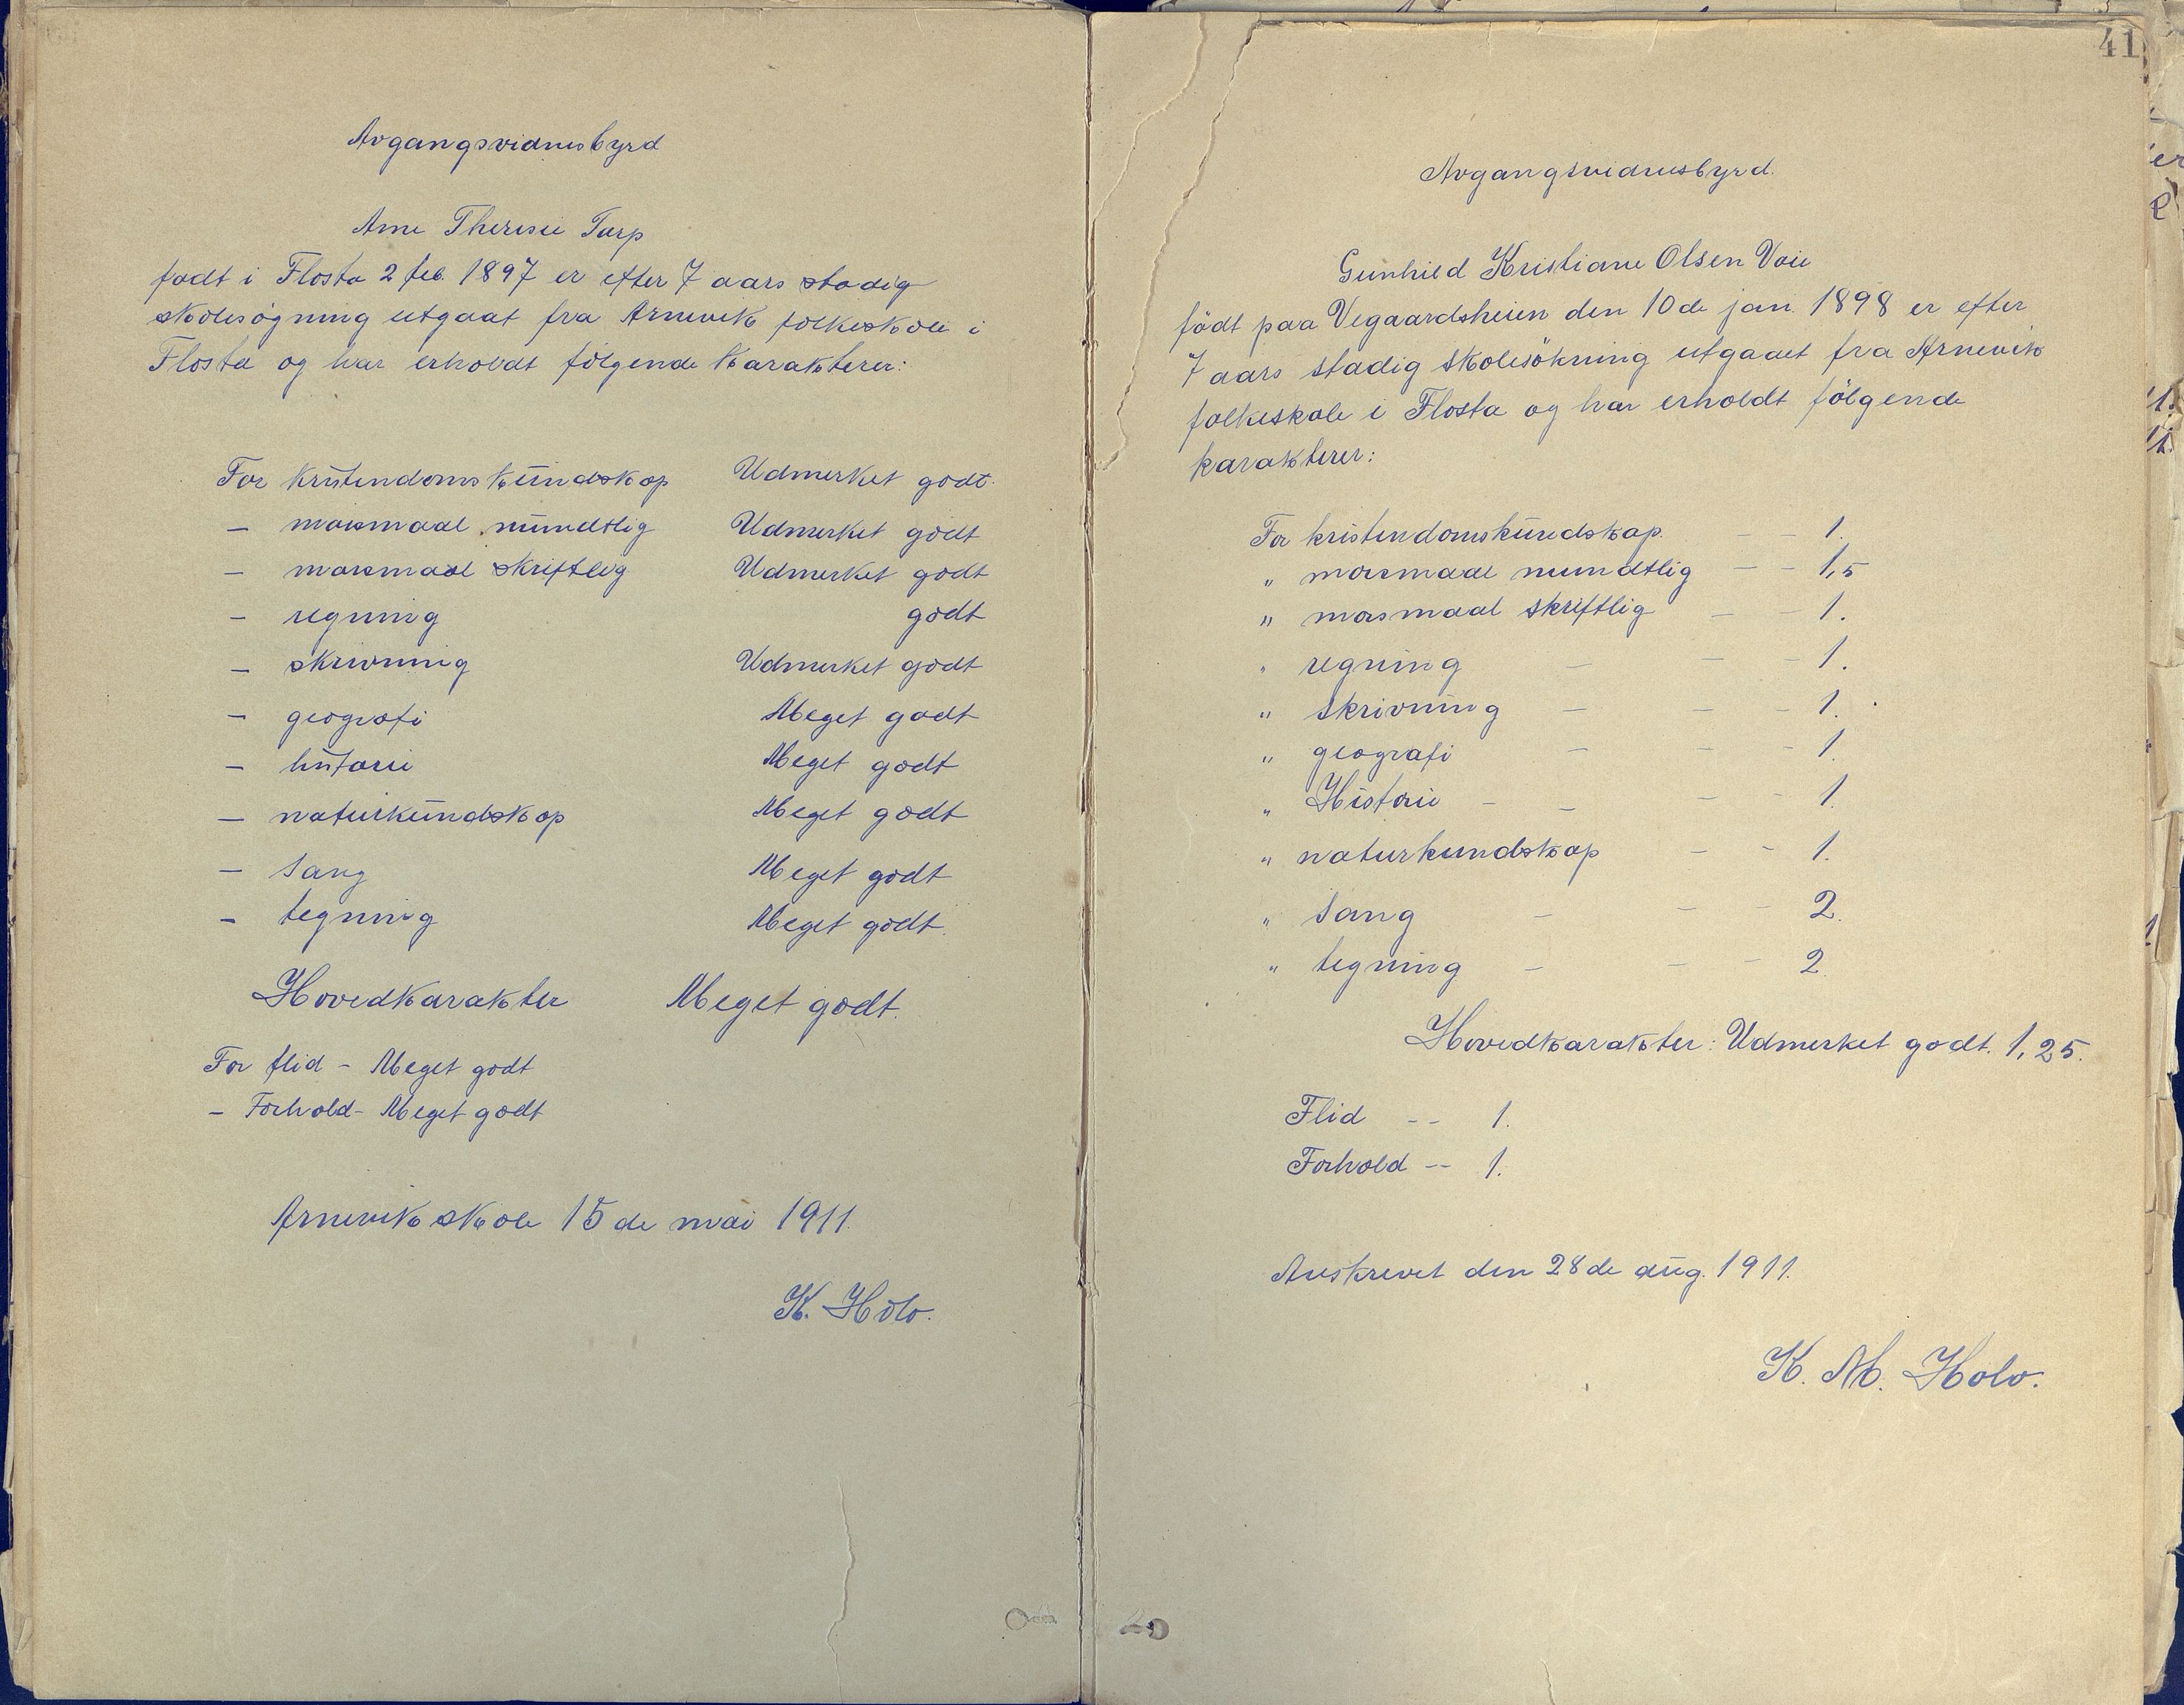 Avgangsvidnesbyrd
Anne Theresie Tarp
født i Flosta 2 feb. 1897 er efter 7 aars stadig
skolesøgning utgaat fra Arnevik folkeskole i
Flosta og har erholdt følgende karakterer:
For kristendomskundskap Udmerket godt.
— morsmaal mundtlig Udmerket godt
— morsmaal skriftlig Udmerket godt
— regning godt
— skrivning Udmerket godt
— geografi Meget godt
— historie Meget godt
— naturkundskap Meget godt
— Sang Meget godt
— tegning Meget godt.
Hovedkarakter Meget godt.
For flid - Meget godt
— Forhold - Meget godt
Arnevik skole 15 de mai 1911.
K. Holo.
41
Avgangsvidnesbyrd.
Gunhild Kristiane Olsen Voie
födt paa Vegaardsheien den 10 de jan. 1898 er efter
7 aars stadig skolesökning utgaaet fra Arnevik
folkeskole i Flosta og har erholdt fölgende
karakterer:
For kristendomskundskap. — — 1.
" morsmaal mundtlig — — 1,5
" morsmaal skriftlig — — 1.
" regning — — — 1.
" skrivning — — — 1.
" geografi — — — 1.
" Historie — — — — 1.
" naturkundskap — — 1.
" Sang — — — 2.
" tegning — — — 2.
Hovedkarakter: Udmerket godt. 1,25.
Flid -- 1.
Forhold -- 1.
Avskrevet den 28 de aug. 1911.
K. M. Holo.